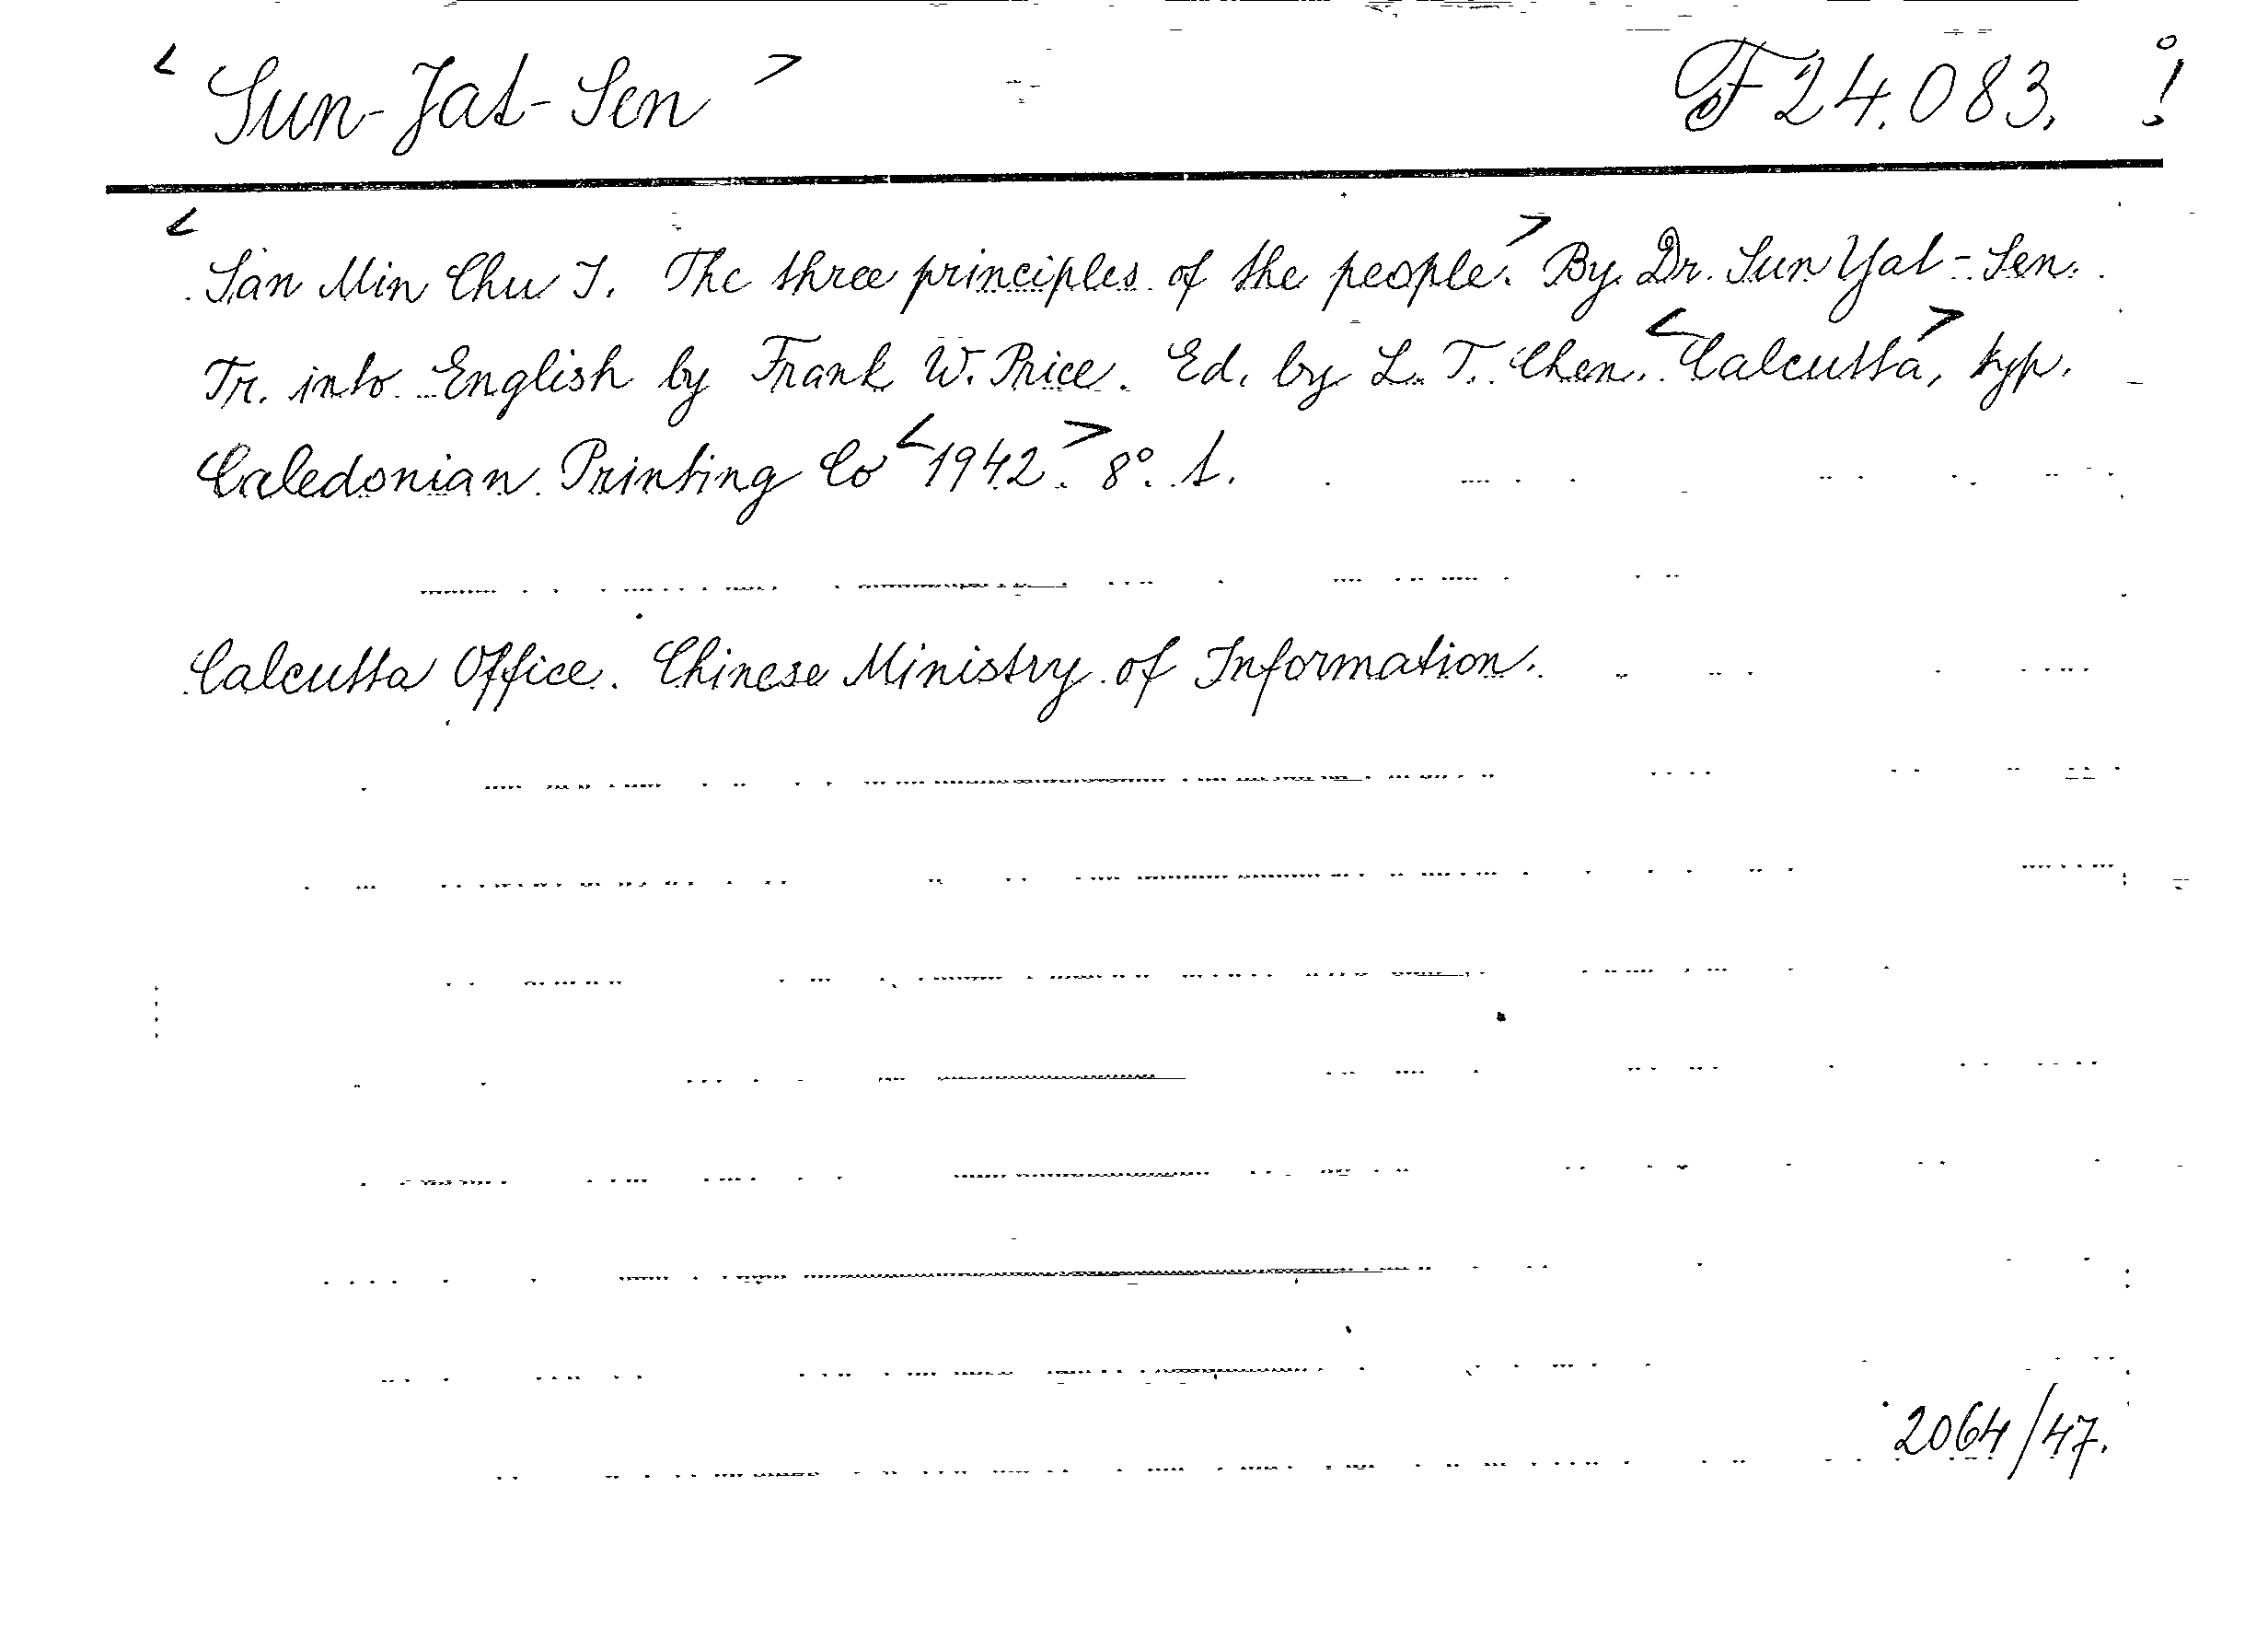 < Sun-Jat-Sen > F 24.083.
< San Min Chu I. The three principles of the people.> By Dr. Sun Yat-Sen.
Tr. into English by Frank W. Price. Ed. by L. T. Chen. <Calcutta>, typ.
Caledonian Printing Co <1942.> 8°. 1.
Calcutta Office. Chinese Ministry of Information.
2064/47.